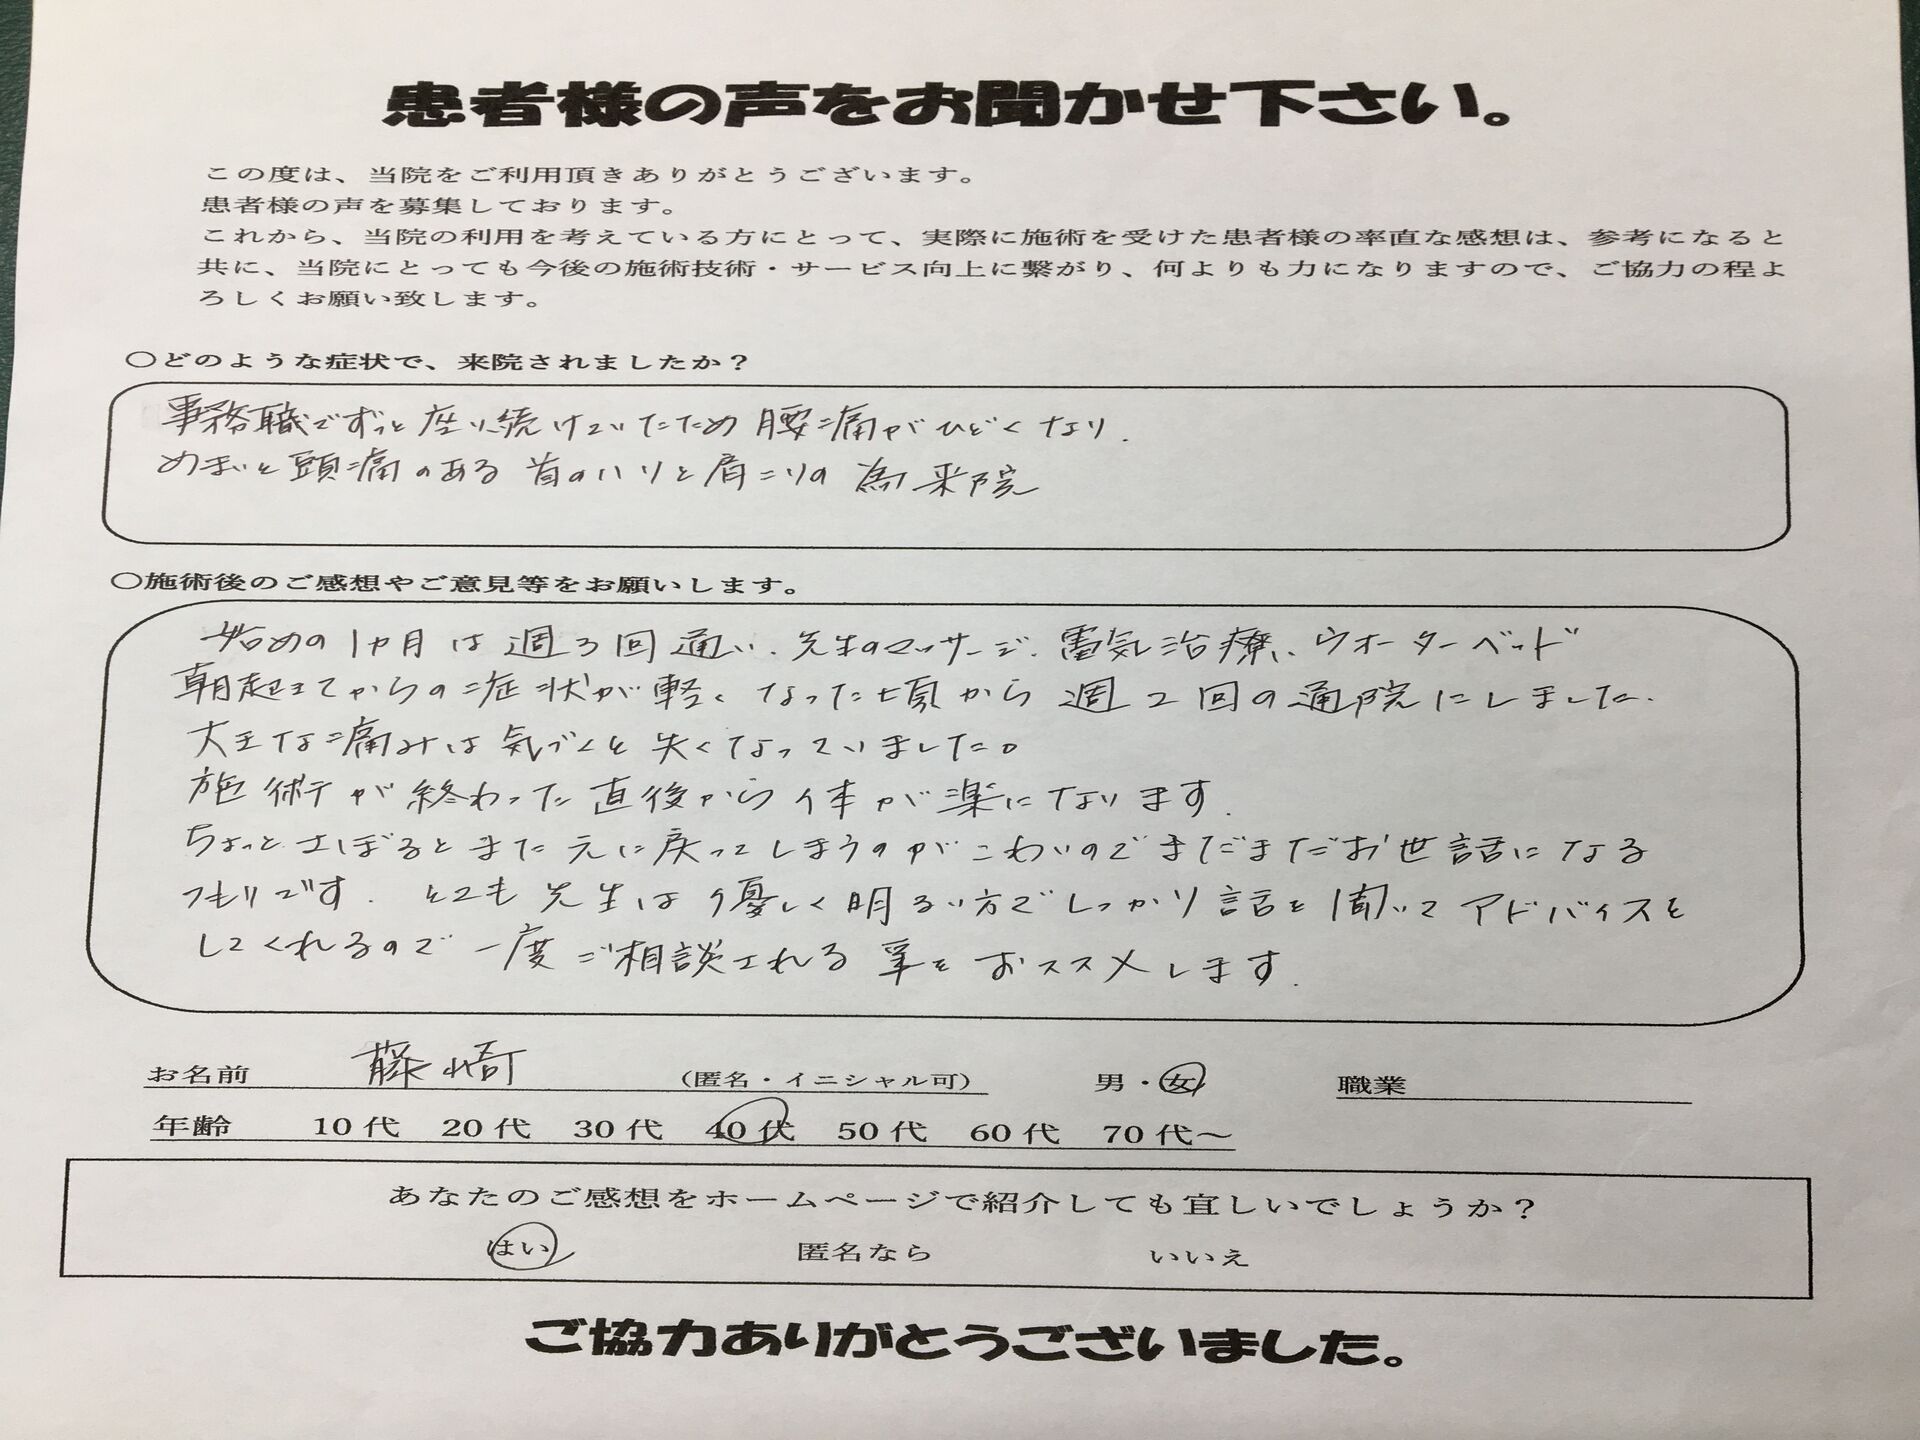 患者様の声をお聞かせ下さい。
この度は、当院をご利用頂きありがとうございます。
患者様の声を募集しております。
これから、当院の利用を考えている方にとって、実際に施術を受けた患者様の率直な感想は、参考になると
共に、当院にとっても今後の施術技術・サービス向上に繋がり、何よりも力になりますので、ご協力の程よ
ろしくお願い致します。
○どのような症状で、来院されましたか？
事務職でずっと座り続けていたため腰痛がひどくなり、
めまいと頭痛のある首のハリと肩こりの為来院
○施術後のご感想やご意見等をお願いします。
始めの1ヵ月は週3回通い、先生のマッサージ、電気治療、ウォーターベッド
朝起きてからの症状が軽くなった頃から週2回の通院にしました。
大きな痛みは気づくと失くなっていました。
施術が終わった直後から体が楽になります。
ちょっとさぼるとまた元に戻ってしまうのがこわいのでまだまだお世話になる
つもりです。とても先生は優しく明るい方でしっかり話を聞いてアドバイスを
してくれるので一度ご相談される事をおススメします。
お名前 藤崎 （匿名・イニシャル可） 男・女 職業
年齢 10代 20代 30代 40代 50代 60代 70代～
あなたのご感想をホームページで紹介しても宜しいでしょうか？
はい 匿名なら いいえ
ご協力ありがとうございました。